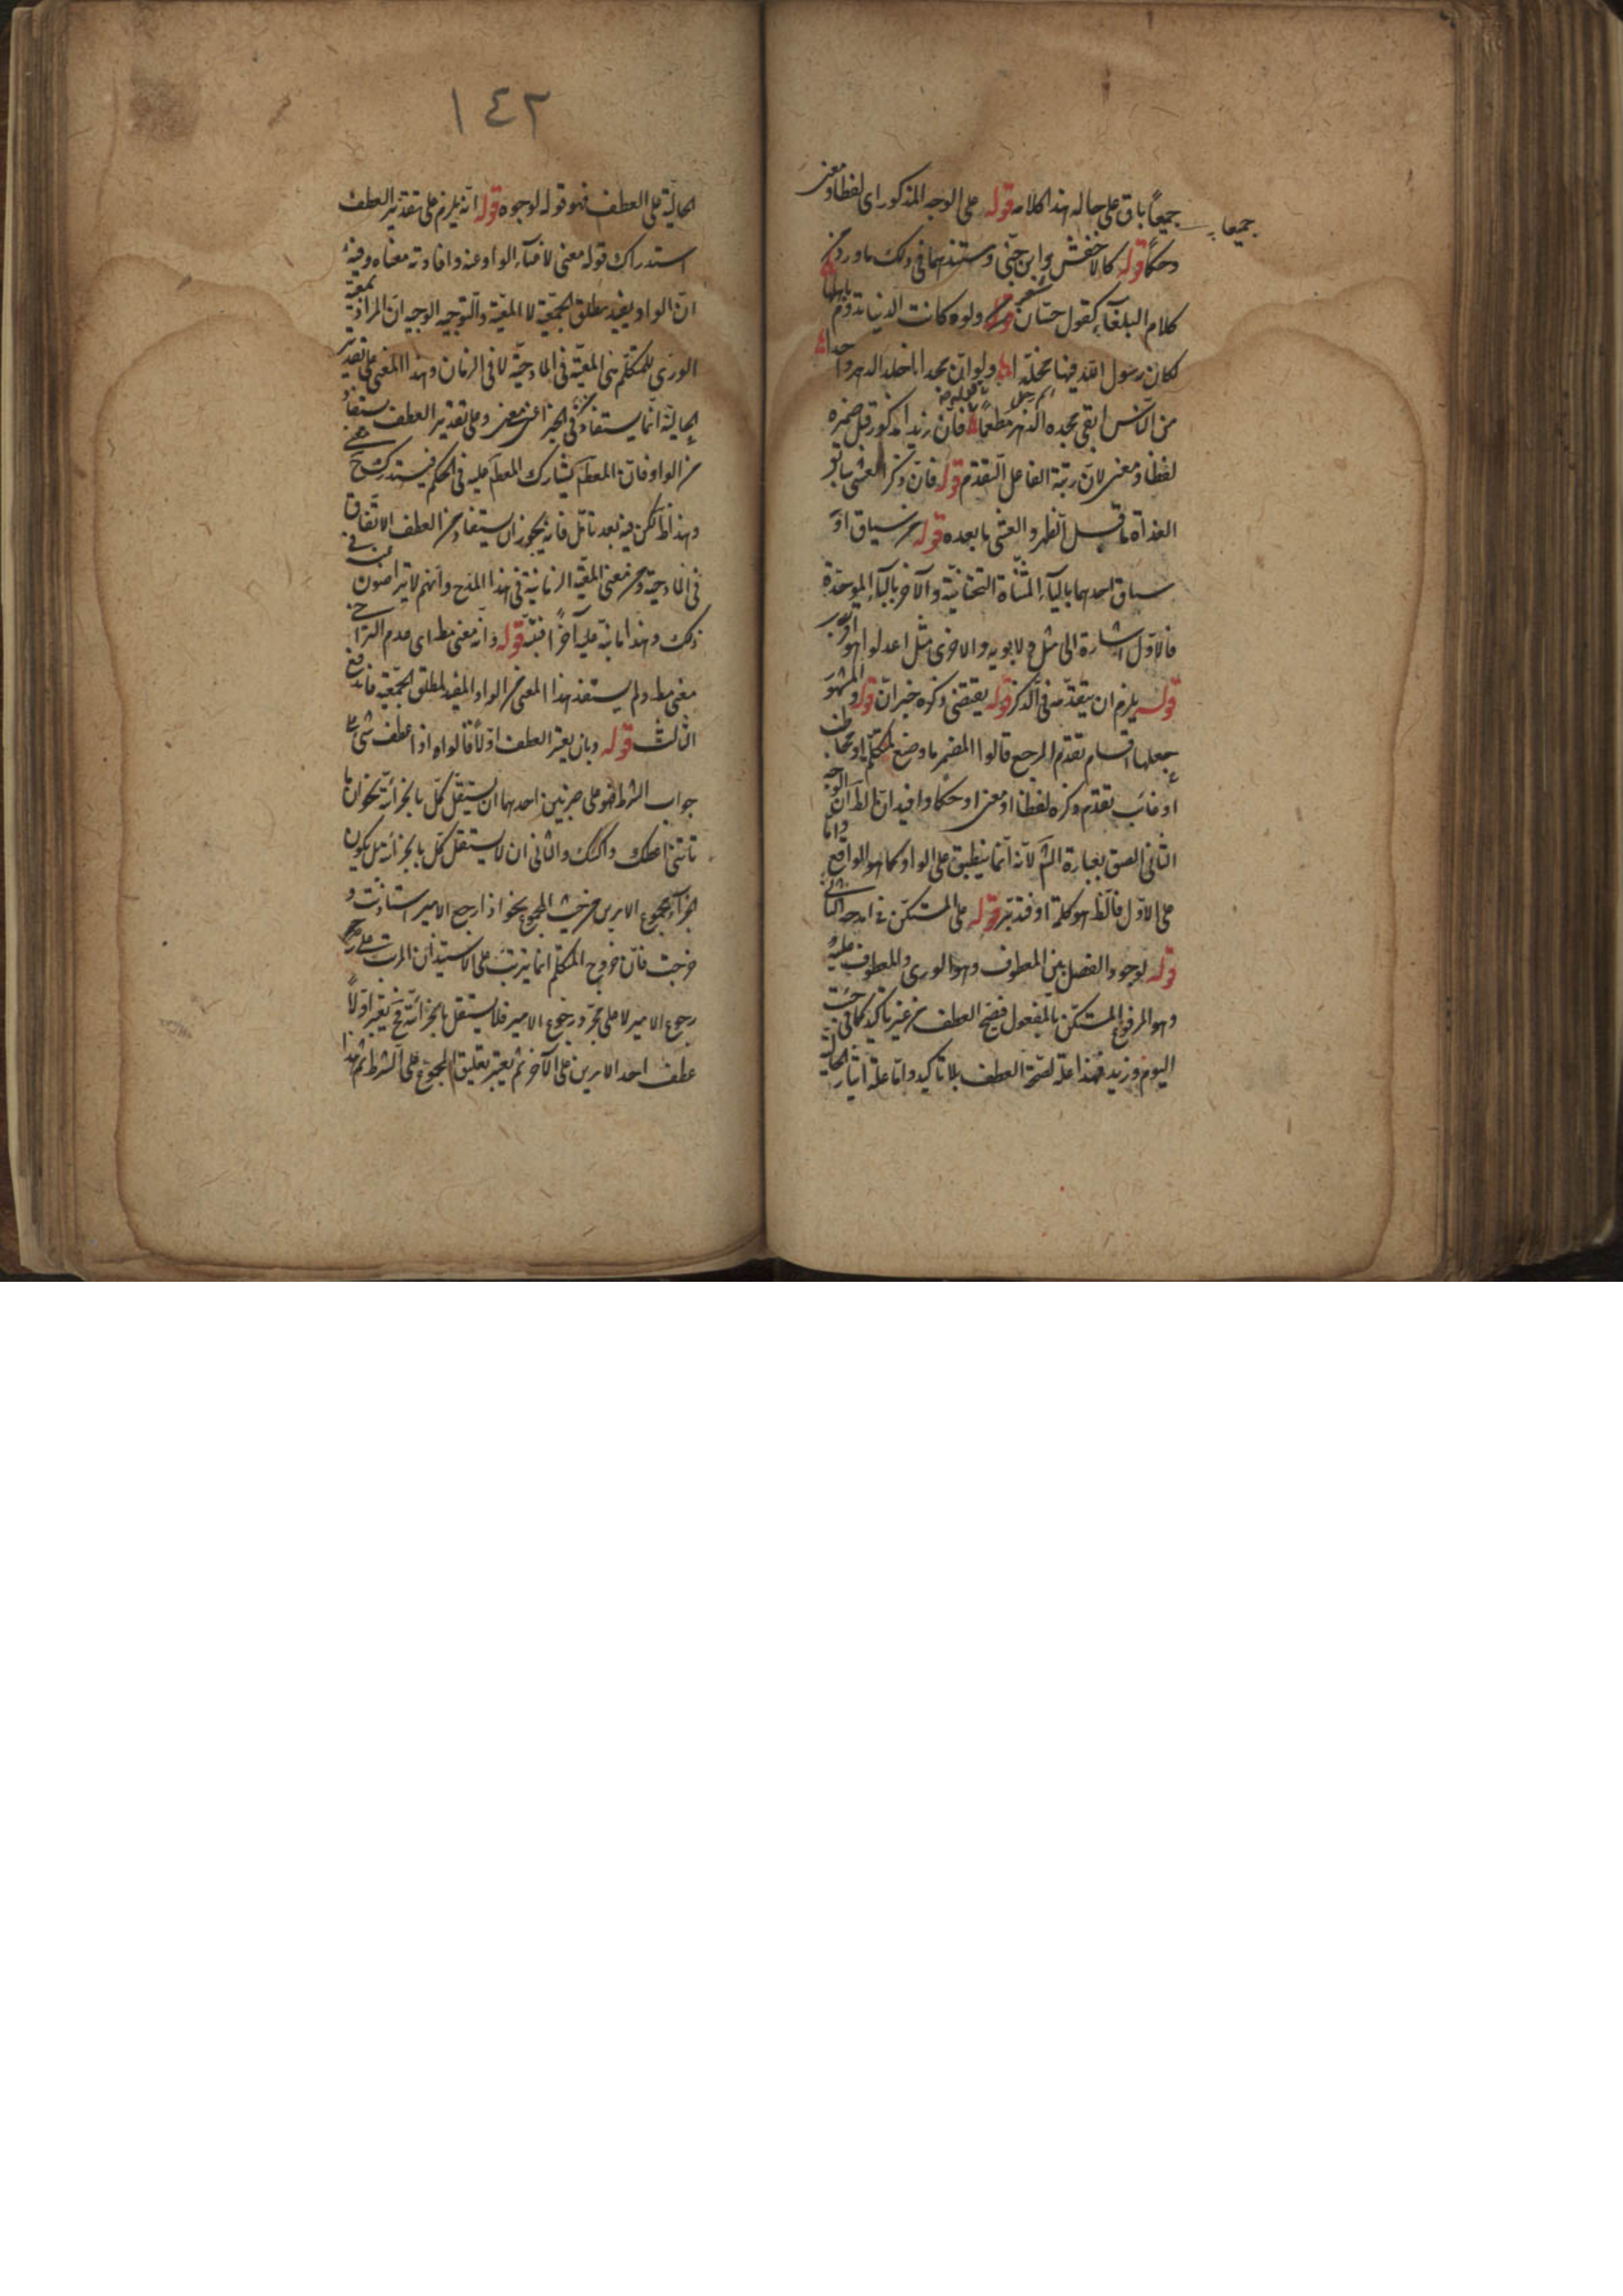 جميعاً باق على حاله هذا كلامه قوله على الوجه المذكور اى لفظا ومعنى
جميعا
وحكماً قوله كالاخفش وابن جنّى ومستندهما فى ذلك ما ورد فى
كلام البلغآء كقول حسّان ولو كانت الدنيا تدوم باهلها
لكان رسول الله فيها مخلّدا ولو انّ مجدا اخلد الدهر واحدا
من النّاس ابقى مجده الدهر مطعماً فانّ زيدا مذكور قبل ضميره
لفظا ومعنى لانّ رتبة الفاعل التقدم قوله فان ذكر العشى
الغداة ما قبل الظهر والعشى ما بعده قوله من سياق او
سباق احدهما باليآء المثنّاة التحتانيّة والآخر بالبآء الموحّدة
فالاوّل اشارة الى مثل ولابويه والاخرى مثل اعدلوا هو اقرب
قوله يلزم ان يتقدّمه فى الذكر قوله يقتضى ذكره خبر انّ قوله والمشهور
جعلها اقسام تقدّم المرجع قالوا المضمر ما وضع لمتكلّم او مخاطب
او غائب تقدّم ذكره لفظا او معنى او حكما وافيد انّ الظ انّ الوجه
الثانى الصق بعبارة الش لانّه انّما ينطبق على الواو كما هو الواقع وامّا
على الاوّل فالظ هو كلمة او فتدبّر قوله على المستكنّ فى امدحه الثانى
قوله لوجود الفصل بين المعطوف وهو الورى والمعطوف عليه
وهو المرفوع المستكنّ بالمفعول فصحّ العطف من غير تاكيد كما فى جئت
اليوم وزيد فهذا علة لصحّة العطف بلا تاكيد وامّا علة ايثار الحالية
١٤٢
الحاليّة على العطف فهو قوله لوجوه قوله انّه يلزم على تقدير العطف
استدراك قوله معى لاغنآء الواو عنه وافادته معناه وفيه
انّ الواو يفيد مطلق الجمعيّة لا المعيّة والتوجيه الوجيه انّ المراد بمعية
الورى للمتكلّم هى المعيّة فى المادحيّة لا فى الزمان وهذا المعنى على تقدير
الحاليّة انّما يستفاد من الخبر اعنى معى وعلى تقدير العطف يستفاد
من الواو فانّ المعط يشارك المعط عليه فى الحكم فيستدرك معى ح
وهذا ظ لكن فيه بعد تامّل فانه يجوز ان يستفاد من العطف الاتّفاق
فى المادحيّة ومن معى المعيّة الزمانيّة فى هذا المدح وانّهم لا يتراخون فى
ذلك وهذا ما نبّه عليه آخرا فتنبّه قوله وانّه معنى مط اى عدم التراخى
معنى مط ولم يستفد هذا المعنى من الواو المفيد لمطلق الجمعيّة فاندفع
الثالث قوله وبان يعتبر العطف اوّلاً قالوا اذا عطف شئ على
جواب الشرط فهو على ضربين احدهما ان يستقلّ كلّ بالجزائيّة نحو ان
تاتنى اعطك واكسك والثانى ان لا يستقلّ كلّ بالجزائيّة بل يكون
الجزآء مجموع الامرين من حيث المجموع نحو اذا رجع الامير استاذنت و
خرجت فانّ خروج المتكلّم انما يترتّب على الاستيذان المرتّب على
رجوع الامير لا على مجرّد رجوع الامير فلا يستقلّ بالجزائيّة فح يعتبر اوّلاً
عطف احد الامرين على الآخر ثم يعتبر تعليق المجموع على الشرط ثم هذا